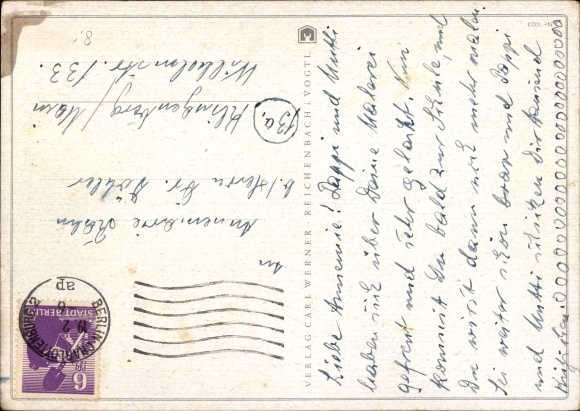 Liebe Annemie! Pappi und Mutti
haben sich über Deine Malerei
gefreut und sehr gelacht. Nun
kommst Du bald zur Schule, und
Du wirst dann noch mehr malen.
Sei weiter schön brav und Pappi
und Mutti schicken Dir tausend
Küßchen:
VERLAG CARL WERNER, REICHENBACH I. VOGTL.
N- 1003
An
Annemarie
b/Herrn Dr.
13a,
Klingenberg/Main
Wilhelmstr. 133.
8.
BERLIN-CHARLOTTENBURG 2
ap
STADT BERLIN
6